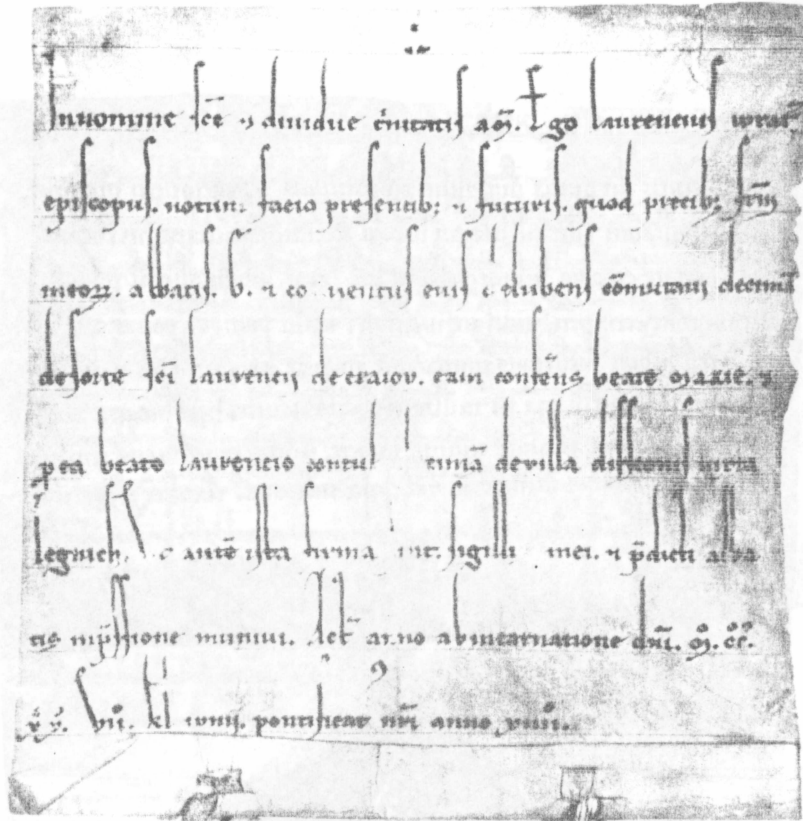 In nomine sce ⁊ dividue t'nitatis am̅. Ego laurencius wrat
episcopus. notum facio presentib; ⁊ futuris. quod precib; frm̅
meorꝝ. abbatis. v. ⁊ co ventus eius comutavi decimā
de sorte sci̅ laurencii de craiov. cum consens beate marie. ⁊
beato laurencio contu timā de villa iuxta
legnich. aute ista firma int. sigilli mei. ⁊ p̅dicti abba
tis imp̅ssione munivi. Act̅ anno ab incarnatione dn̅i. m̊. cc̊.
x̊. v̊. vii̊. kl iunii. pontificat nr̅i anno viiii̊.